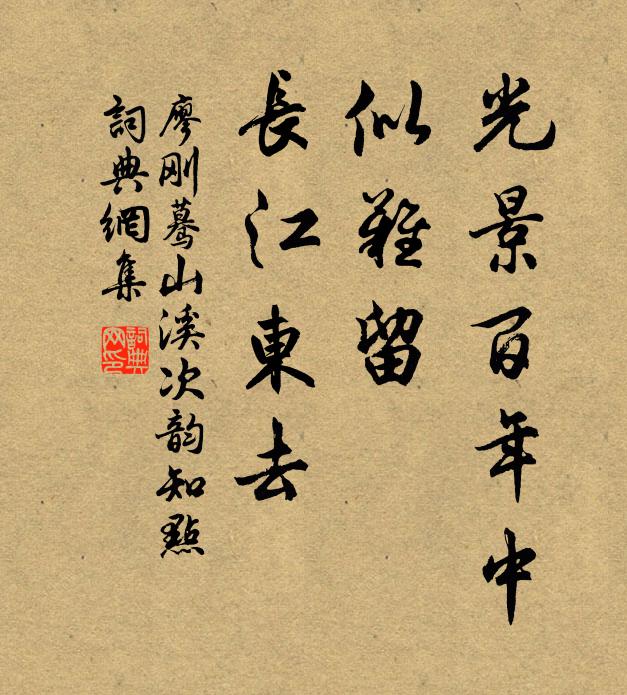 光景百年中
似難留
長江東去
廖刚驀山溪次韵知點
詞典網集
詞典网印